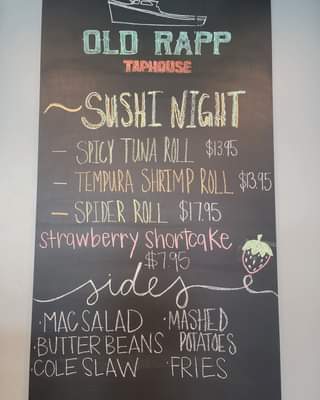 OLD RAPP
TAPHOUSE
~SUSHI NIGHT
- SPICY TUNA ROLL $13.95
- TEMPURA SHRIMP ROLL $13.95
- SPIDER ROLL $17.95
strawberry shortcake
$7.95
sides
·MAC SALAD
·BUTTER BEANS
·COLE SLAW
·MASHED
POTATOES
·FRIES